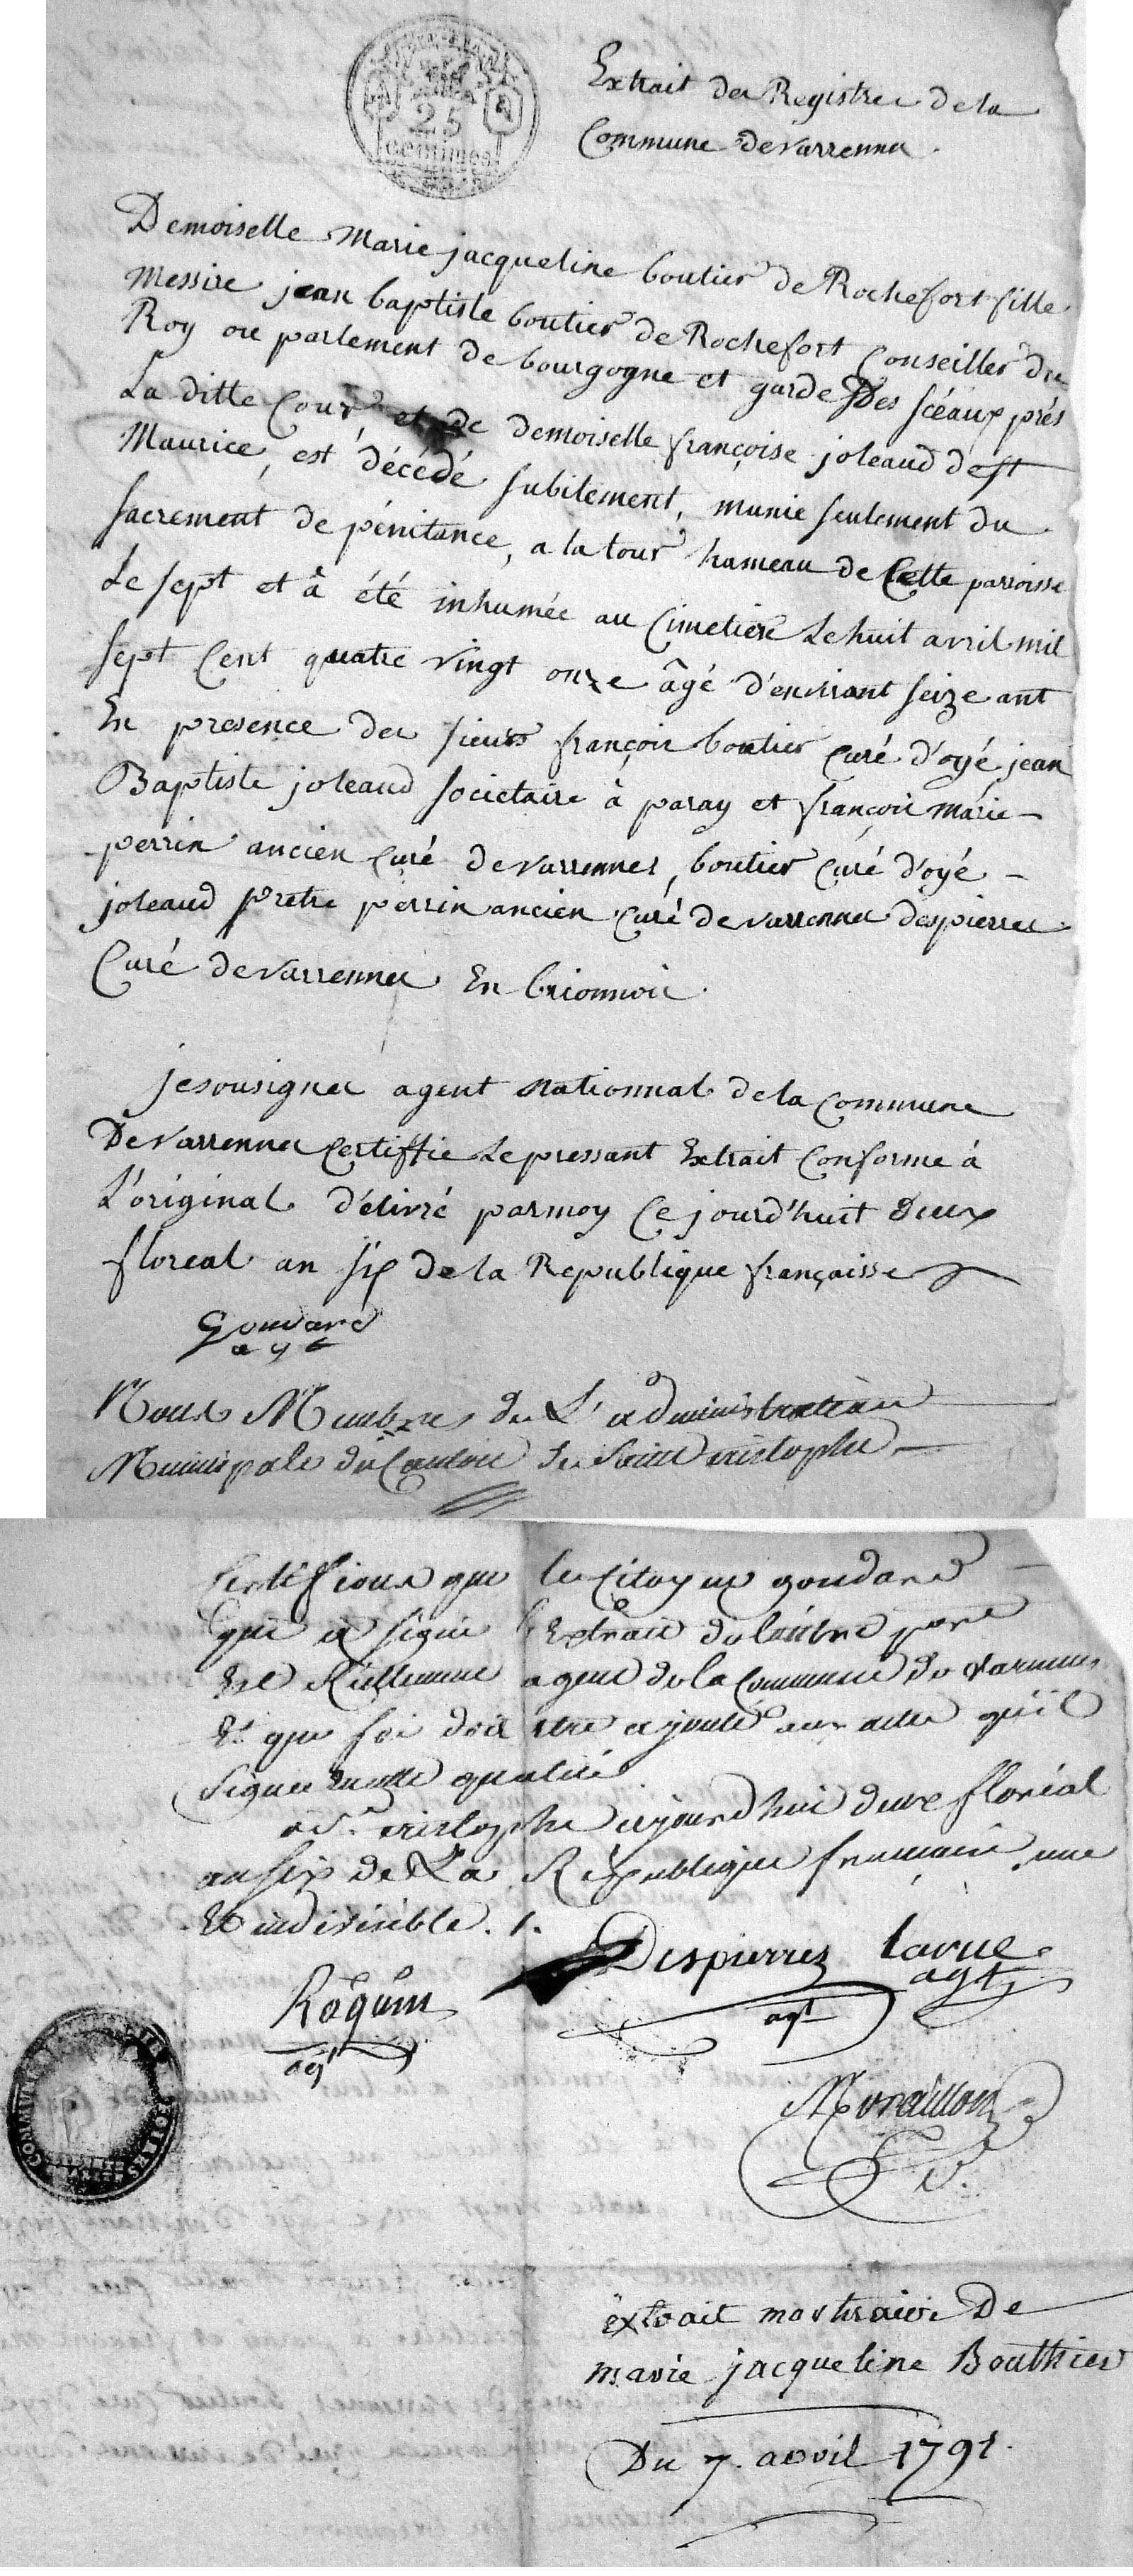 25
centimes
Extrait des Registres de la
Commune de varrennes.
Demoiselle Marie jacqueline boutier de Rochefort fille
Messire jean baptiste boutier de Rochefort Conseiller du
Roy au parlement de bourgogne et garde Des scéaux prés
La ditte Cour et de demoiselle françoise joleaud de st
Maurice, est décédé subitement, munie seulement du
sacrement de pénitance, a la tour hameau de Cette parroisse
Le sept et à été inhumée au Cimetiere Le huit avril mil
sept Cent quatre vingt onze âgé d'environt seize ant
En presence des sieurs françois boutier Curé d'oyé jean
Baptiste joleaud societaire à paray et françois marie –
perrin ancien Curé de varrennes, boutier Curé d'oyé –
joleaud pretre perrin ancien Curé de varrennes despierres
Curé de varrennes En brionnois.
je sousignes agent nationnal de la Commune
De varrennes Certiffie Le pressant Extrait Conforme à
L'original délivré par moy Ce jourd'huit deux
floreal an six de la Republique françaisse
Goudard
agt
Nous Membres de L'administration
Municipale du Canton de Saint cristophe
Certiffions que le Citoyen goudard
qui a signé l'Extrait de l'autre part
Est Réellement agent de la Commune de varennes
Et que foi doit être ajouté aux actes qu'il
signe en cette qualité
a St. cristophe cejourdhui deux floréal
an six de La République française une
Et indivisible. /.
Despierres
agt
Lavue
agt
Roquin
agt
Moraillon
extrait mortuaire De
marie jacqueline Bouthier
Du 7. avril 1791.